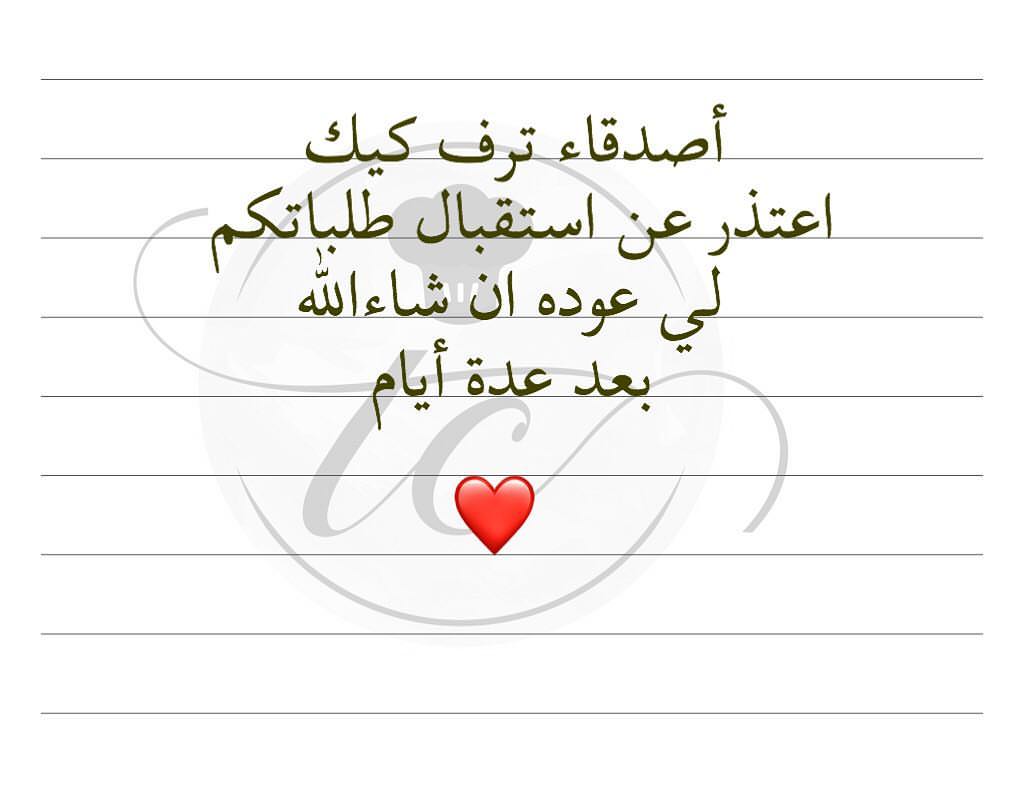 أصدقاء ترف كيك
اعتذر عن استقبال طلباتكم
لي عوده ان شاءالله
بعد عدة أيام
❤️
tc